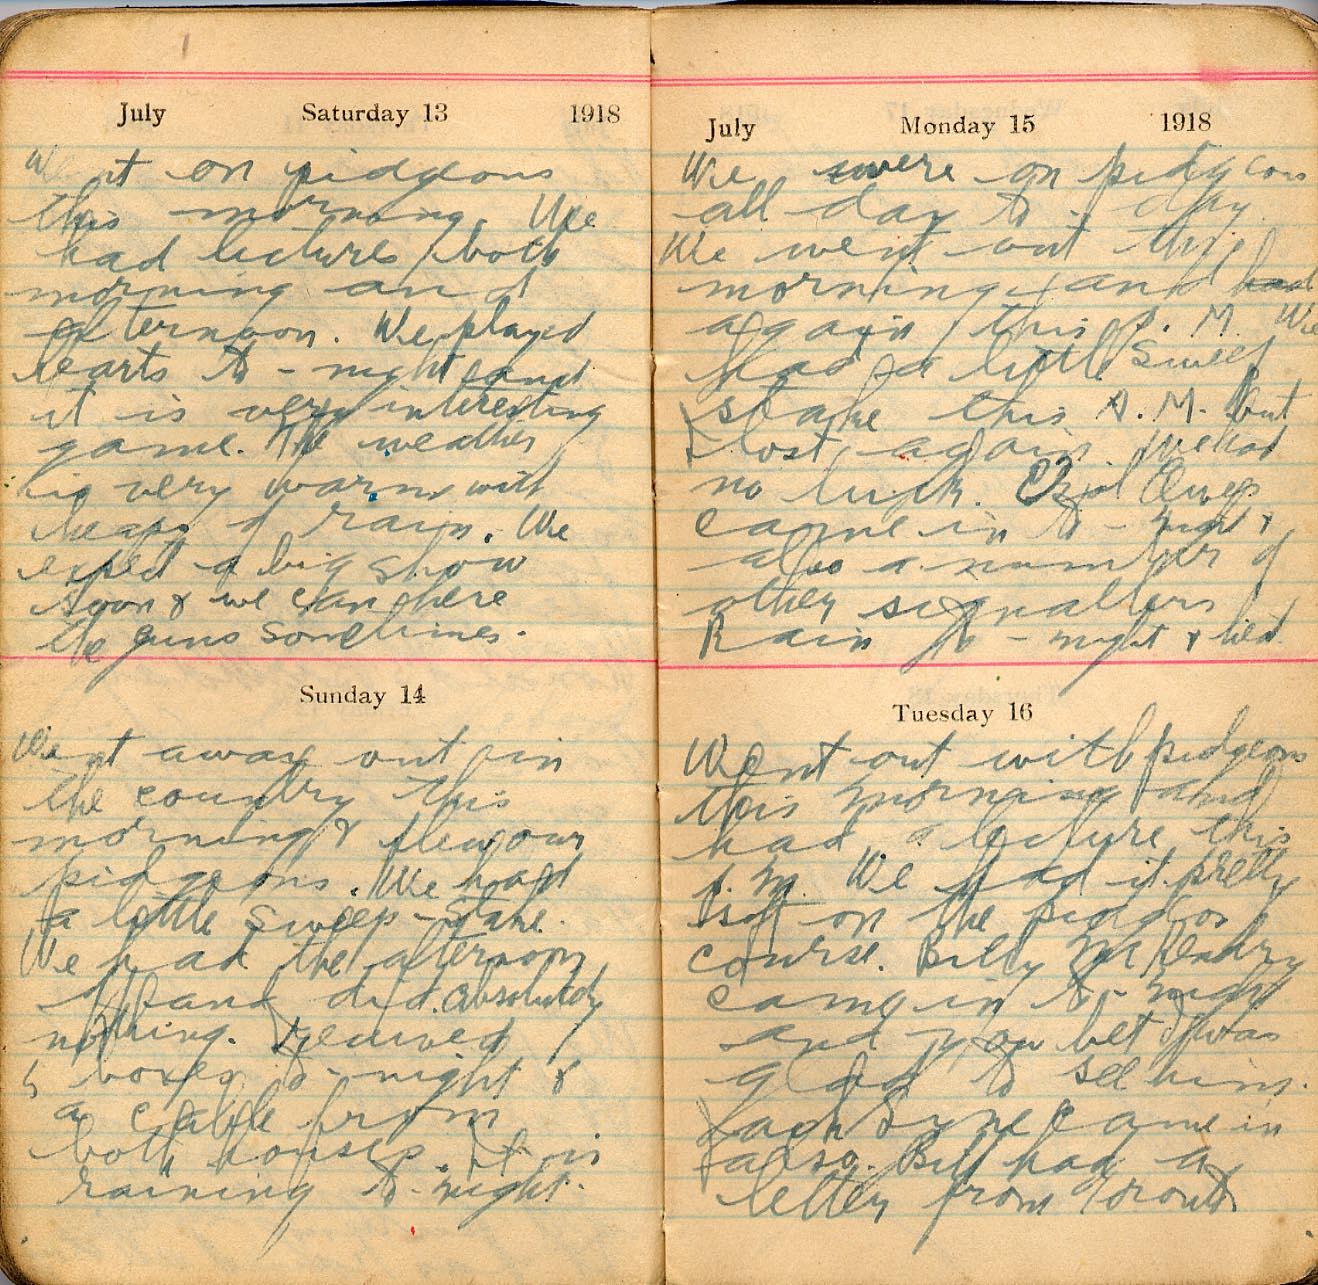 July Saturday 13 1918
Went on pidgeons
this morning. We
had lectures both
morning and
afternoon. We played
hearts to-night and
it is very interesting
game. The weather
is very warm with
heaps of rain. We
expect a big show
soon & we can here
the guns sometimes.
Sunday 14
Went away out in
the country this
morning & flew our
pidgeons. We had
a little Sweep-Stake.
We had the afternoon
off and did absolutely
nothing. Received
5 boxes to-night &
a cable from
both houses. It is
raining to-night.
July Monday 15 1918
We were on pidgeons
all day to-day.
We went out this
morning and had
again this P.M. We
had a little sweep
stake this A.M. but
lost again. We had
no luck. Owens
came in to-night &
also a number of
other signallers
Rain to-night &
Tuesday 16
Went out with pidgeons
this morning and
had a lecture this
P.M. We had it pretty
soft on the pidgeon
course. Billy McKendry
came in to-night
and you bet I was
glad to see him.
Jack Syne came in
also. Bill had a
letter from Toronto